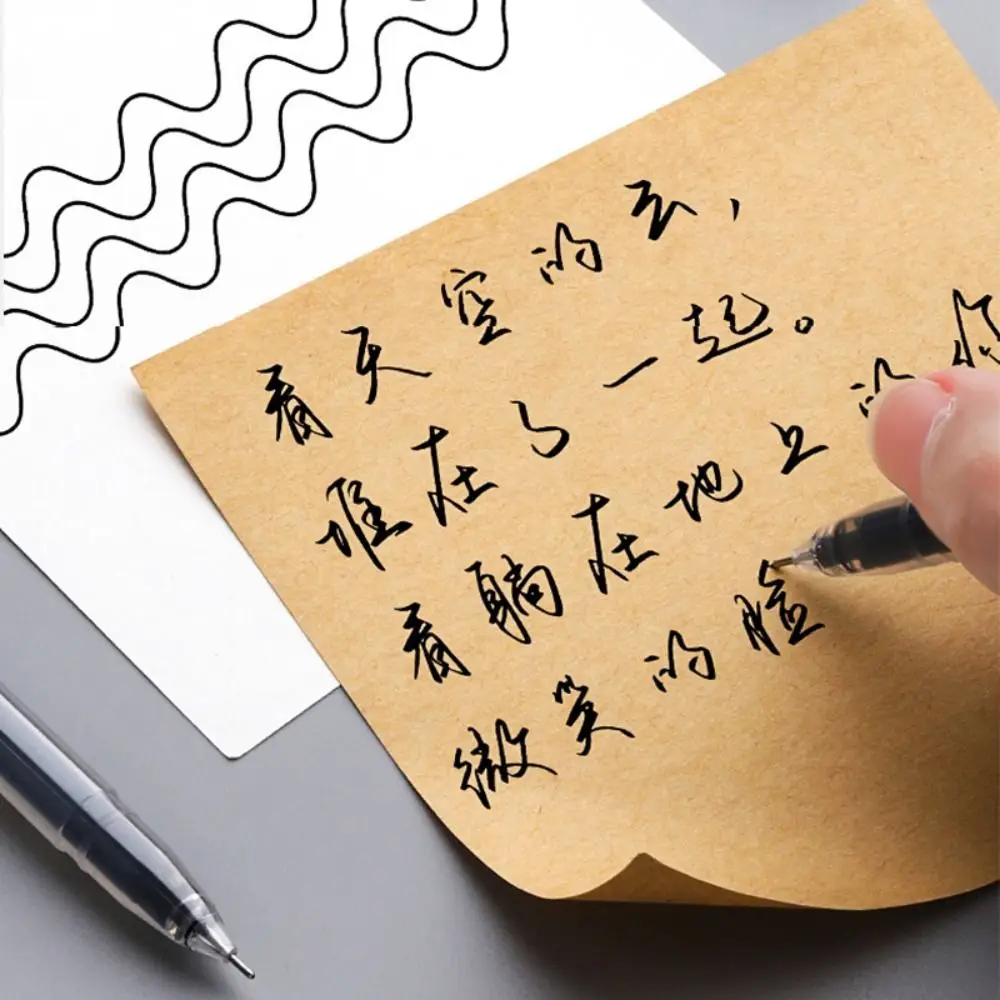 看天空的云，
堆在了一起。
看躺在地上的你
微笑的脸